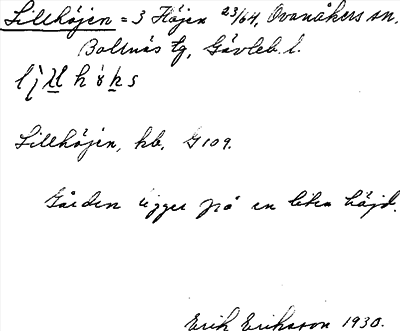 Lillhöjen = 3 Höjen 23/64, Ovanåkers sn.
Bollnäs tg, Gävleb. l.
Lillhöjen, hb. G 109.
Gården ligger på en liten höjd.
Erik Eriksson 1930.